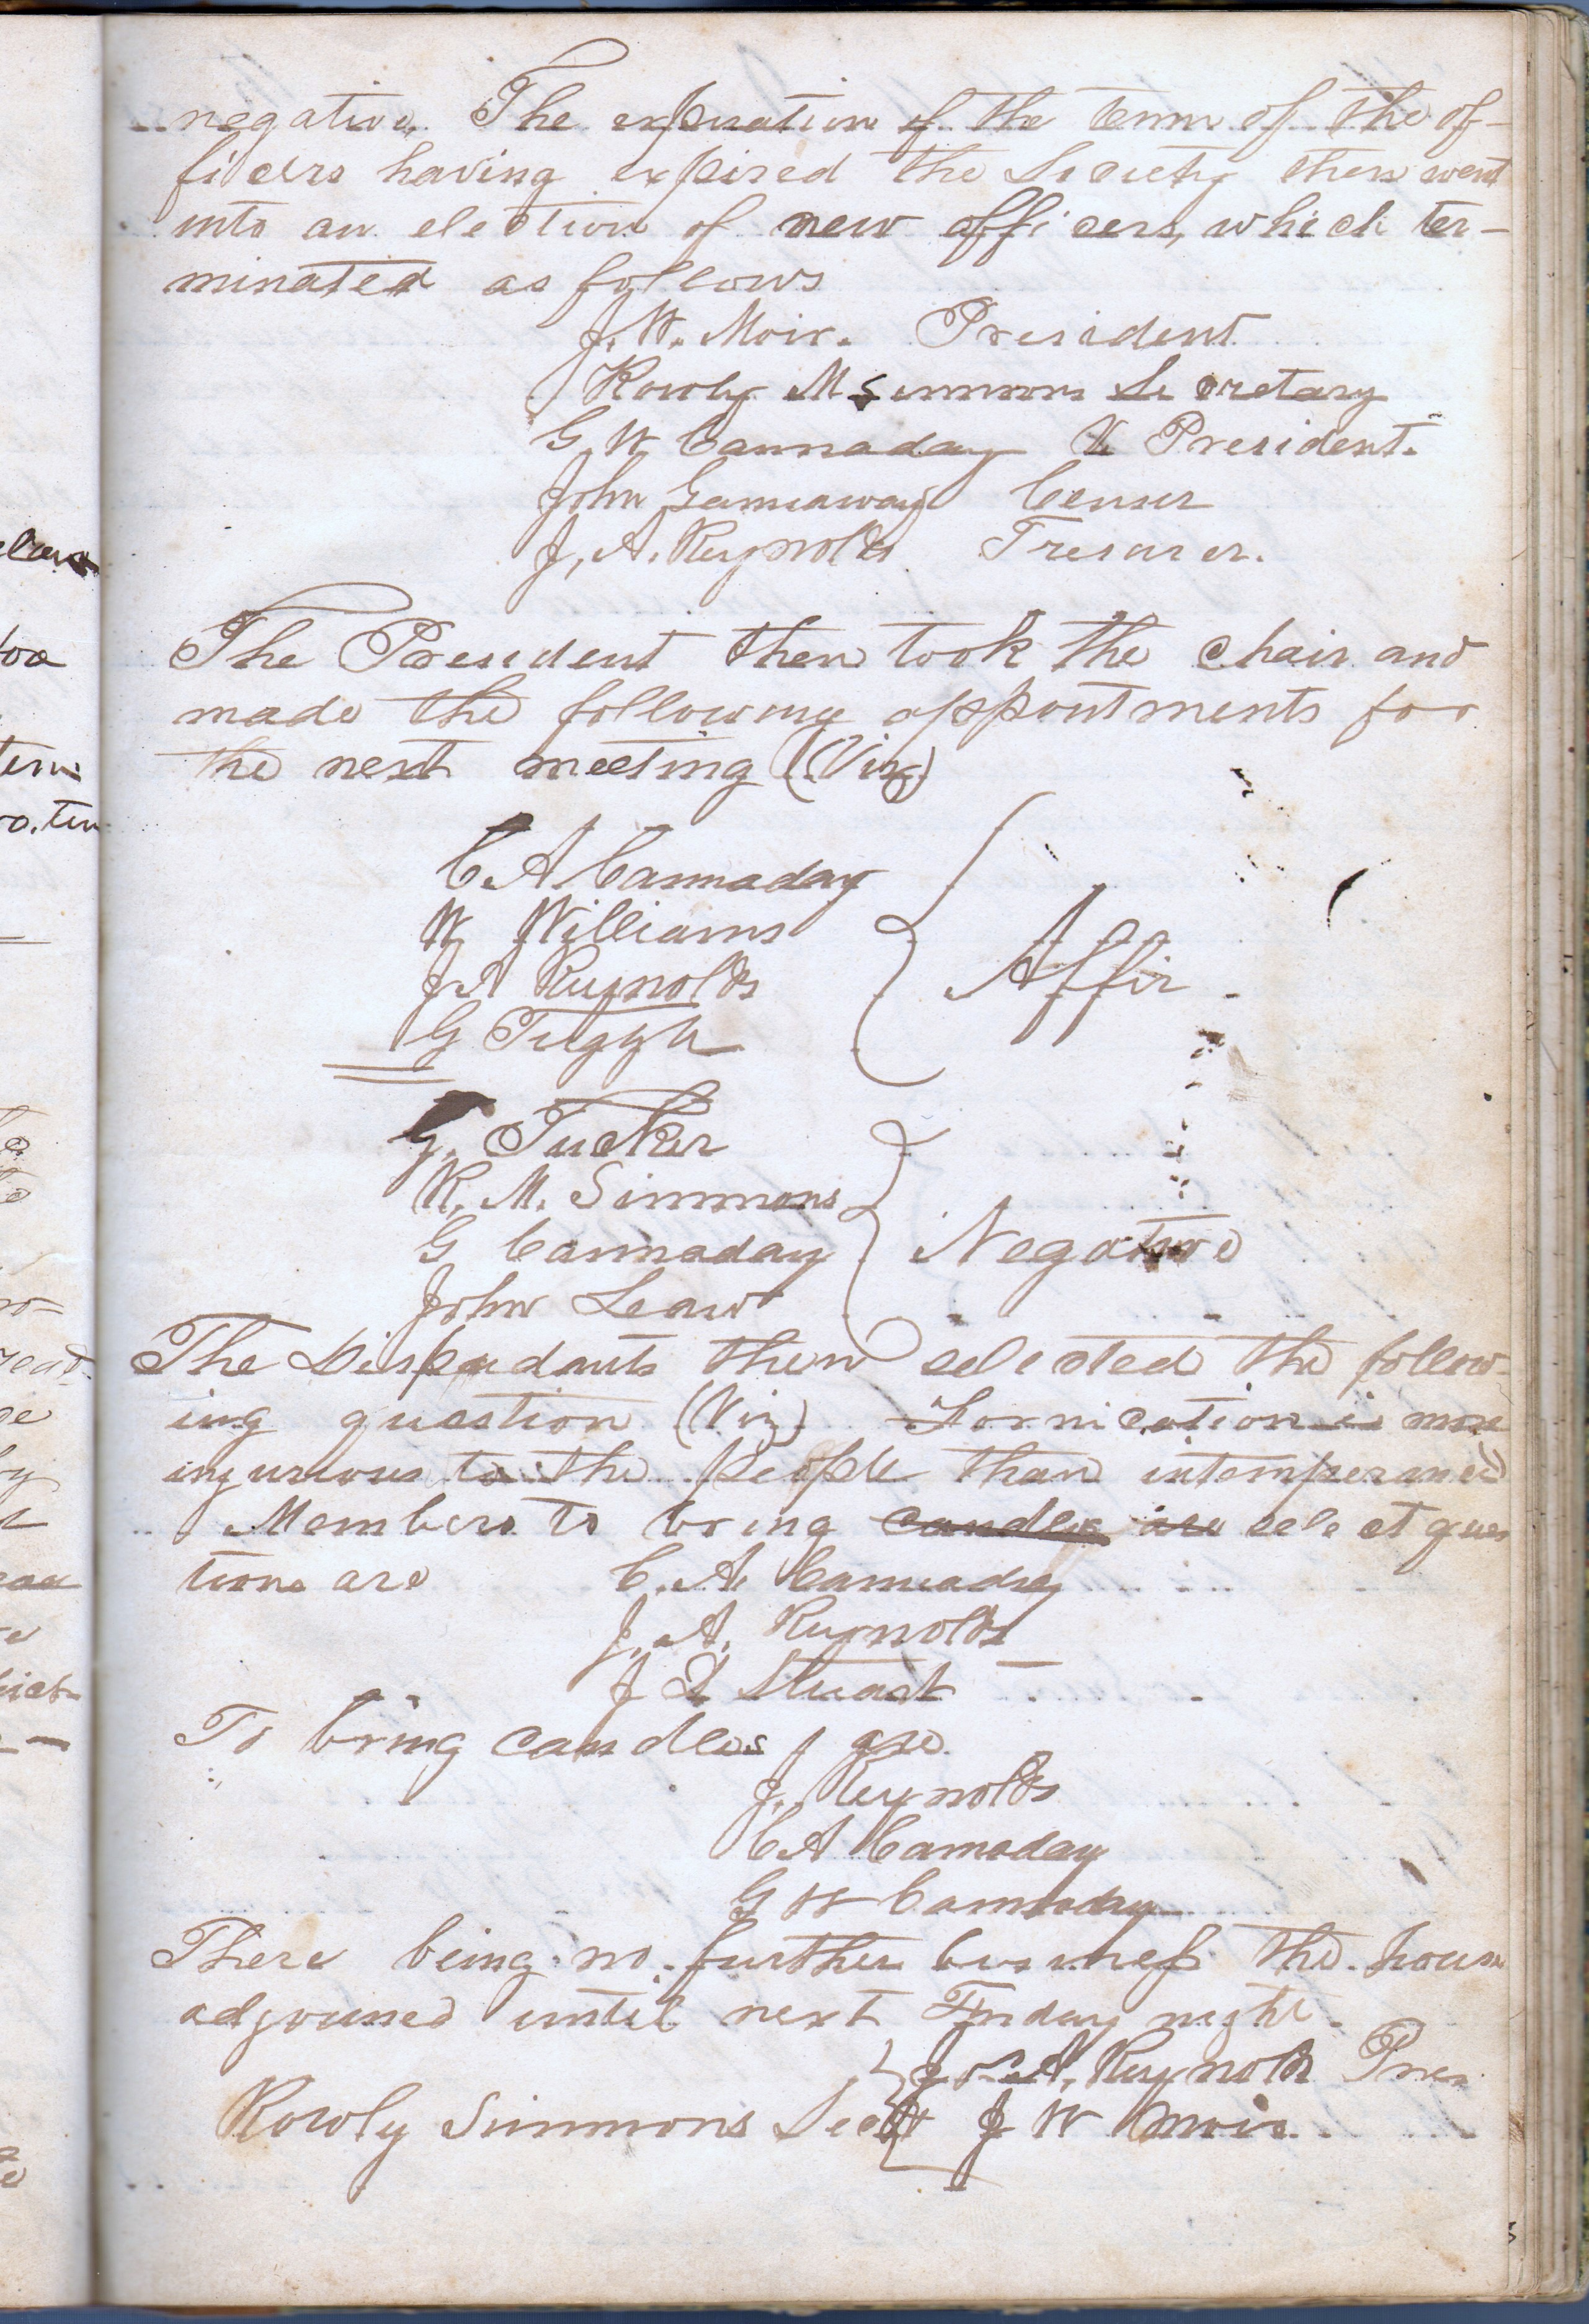 negative. The expiration of the term of the of-
ficers having expired the Society then went
into an election of new officers, which ter-
minated as follows
J. W. Moir. President
Rowly M Simmons Secretary
G W Cannaday V President.
John Gannaway Censer
J, A. Reynolds Tresurer.
The President then took the chair and
made the following appointments for
the next meeting (Viz)
C A Cannaday
W Williams
J A Reynolds
G Tuggle
Affir
G. Tucker
R. M. Simmons
G Cannaday
John Leaw
Negative
The Disputants then selected the follow-
ing question (Viz) Fornication is more
injurious to the people than intemperance
Members to bring candles are select ques
tions are C. A. Cannaday
J. A. Reynolds
J Stuart
To bring candles are
J. Reynolds
C A Cannaday
G W Cannaday
There being no further business the house
adjouned until next Friday night.
Jos. A. Reynolds Pres
Rowly Simmons Sect J W Moir.